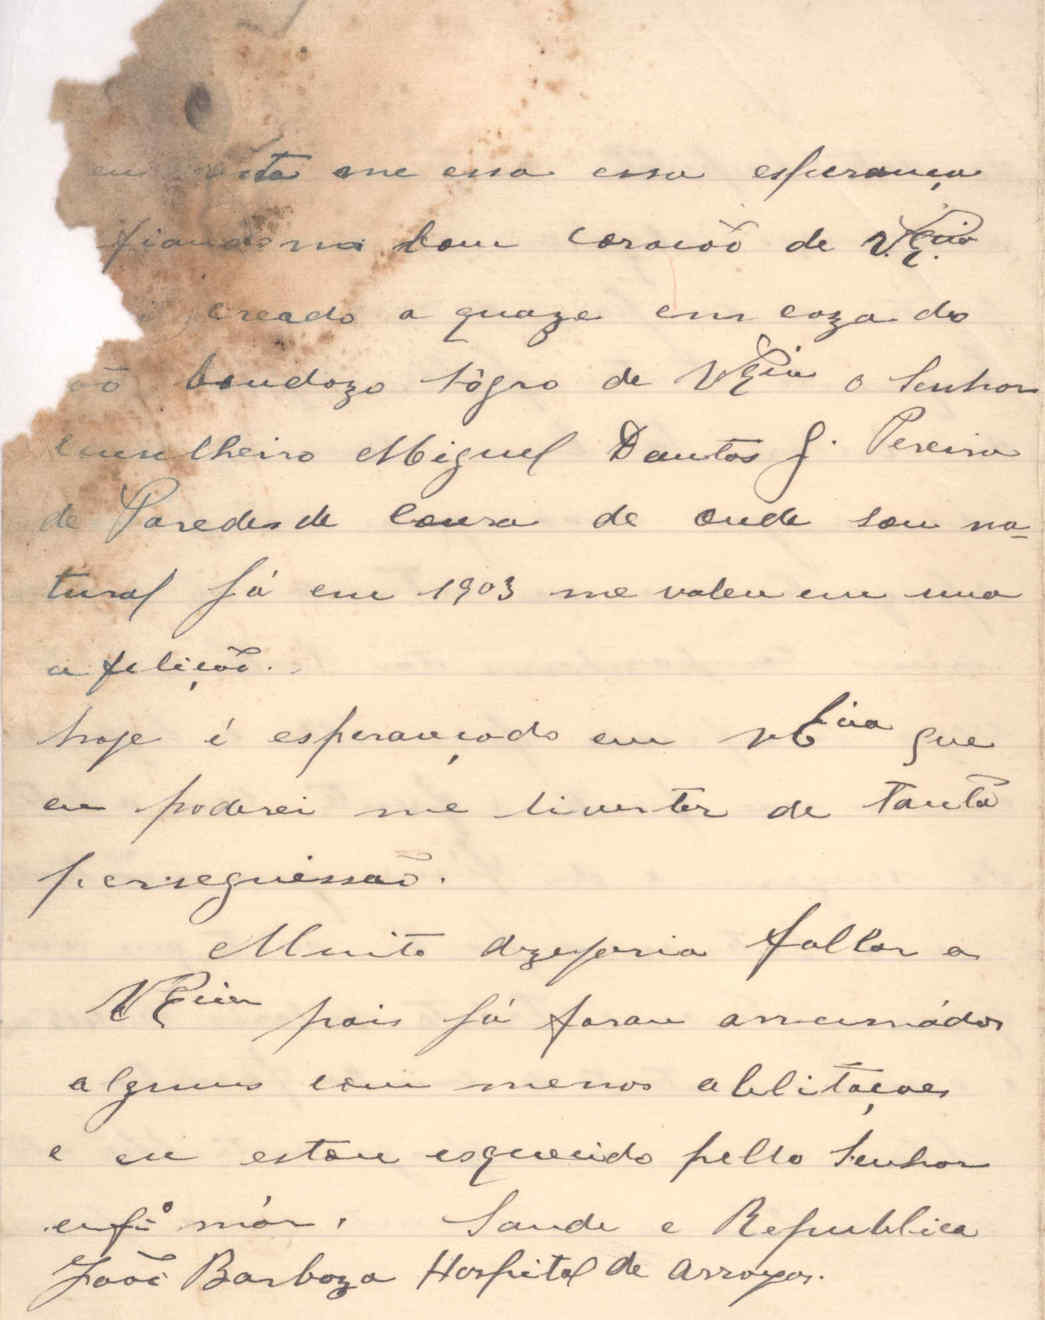 me essa essa esperança
fiando no bom coracoõ de V. Exia
creado a quaze em caza do
boudozo sôgro de VExia o Senhor
Counselheiro Miguel Dantas G. Pereira
de Paredes de Coura de onde sou na-
tural já em 1903 me valeu em uma
afeliçoã.
hoje é esperançado em VExia que
eu poderei me liverter de tanta
perseguissaõ.
Muito dzejaria fallar a
VExia pois já foram arrumádos
alguns com menos ablitaçoes
e eu estou esquecido pello Senhor
enfº mór. Saude e Republica
Joaõ Barboza Hospital de Arroyos.